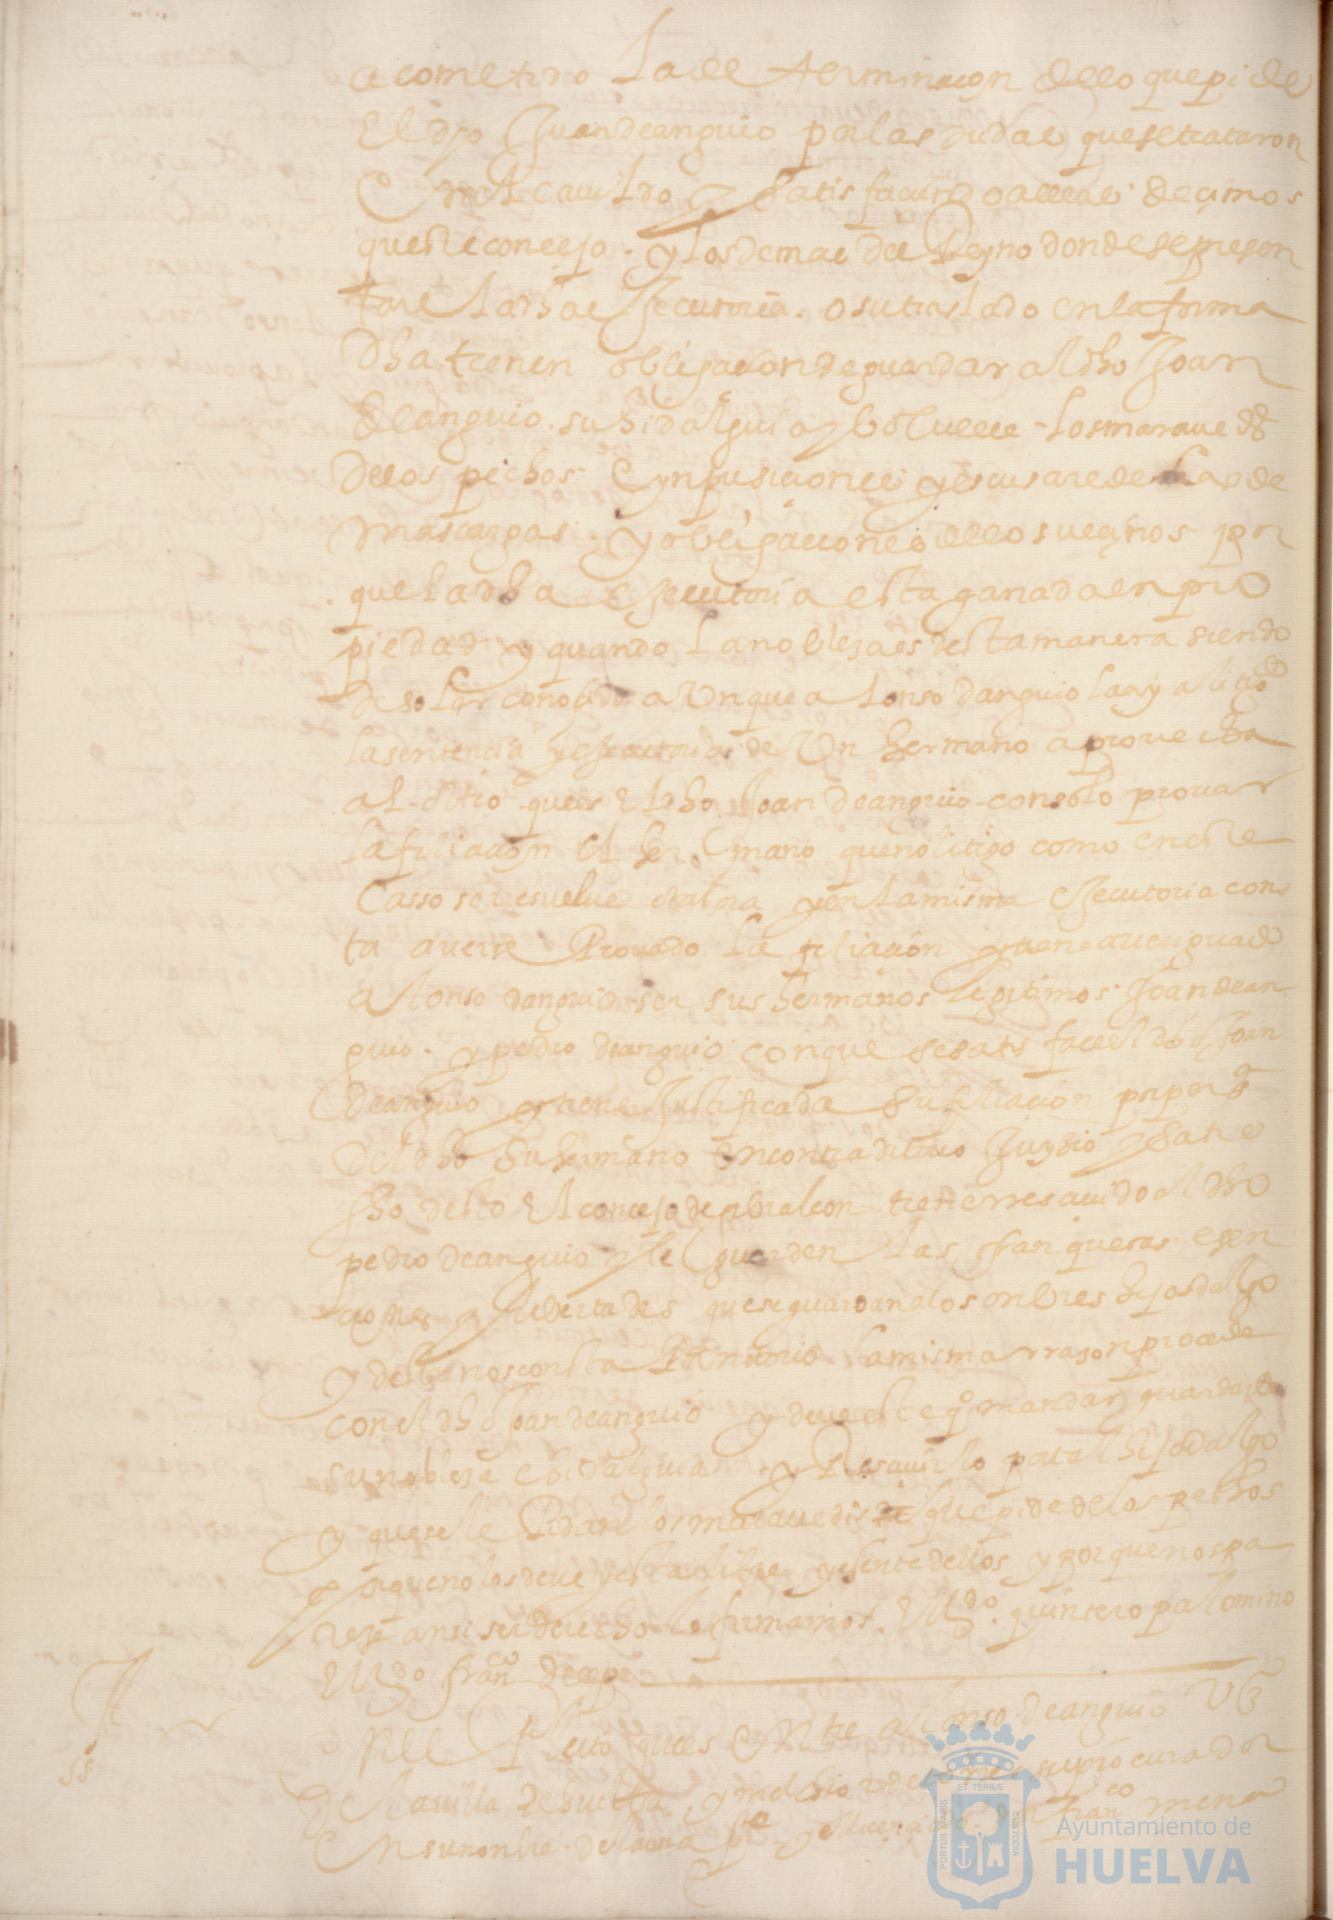 acometido la determinaçon dello que pide
El dho Juan de anguio por las dudas que se trataron
En el cauildo y satisfaciendo a ellas decimos
que este concejo y los demas del Reyno donde se presen
tare la dha executoria o su traslado en la forma
dha tienen obligacion de guardar al dho Joan
de anguio su hidalguia y boluelle los maraue d̃s
de los pechos E ynpusiciones y escusar de las de
mas cargas y obligaciones de los vecinos por
que la dha executoria esta ganada en pro
piedad y quando la nobleza es desta manera siendo
de solar conosido aunque alonso danguio la aya litigdo
la sentencia y executorias de Un hermano aprovecha
al otro ques el dho Joan de anguio con solo prouar
la filiacion el hermano que no litigo como en este
Casso se resuelue y en la misma executoria cons
ta auerse Prouado la filiacion y tiene aueriguado
alonso danguio ser sus hermanos legitimos Joan de an
guio y pedro de anguio conque se satisface el dho Joan
de anguio y tiene Justificada su filiacion por
del dho su hermano en contraditorio Juyzio y satis
fho desto El concejo de gibraleon tiene rresceuido al dho
pedro de anguio y le guarden las franquesas esen
ciones y libertades que se guardan a los onbres hijosdalgo
y desta nos consta la misma rrason procede
con el dho Joan de anguio y deue este q̃ mandar guardarle
su nobleza e hidalguia y Resceuirlo por tal hijodalgo
y que se le los marauedis que pide de los pechos
que no los deue y esta libre y esente dellos y porque nos pa
rese ansi ser derecho lo firmamos El ldo quintero palomino
El ldo franco de cepe
En El Pleito ques Entre alonso de anguio vo
de la uilla de huelua y melchior de su procurador
En su nonbre de la una pte y El licenciado franco mena
ss
Ayuntamiento de
HUELVA
PORTUS MARIS
ET TERRÆ
CUSTODIA